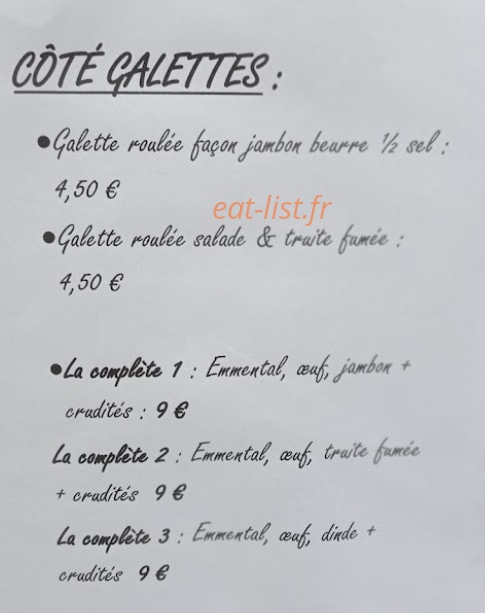 CÔTÉ GALETTES :
●Galette roulée façon jambon beurre ½ sel :
4,50 €
eat-list.fr
●Galette roulée salade & truite fumée :
4,50 €
●La complète 1 : Emmental, œuf, jambon +
crudités : 9 €
La complète 2 : Emmental, œuf, truite fumée
+ crudités 9 €
La complète 3 : Emmental, œuf, dinde +
crudités 9 €